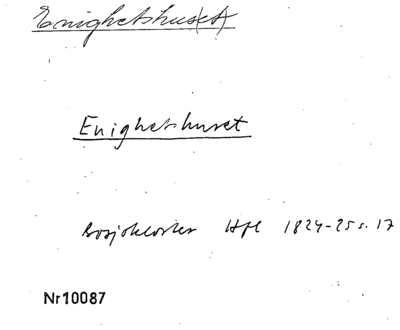 Enighetshus(et)
Enighetshuset
Bosjökloster Hfl 1824-25 s. 17
Nr10087